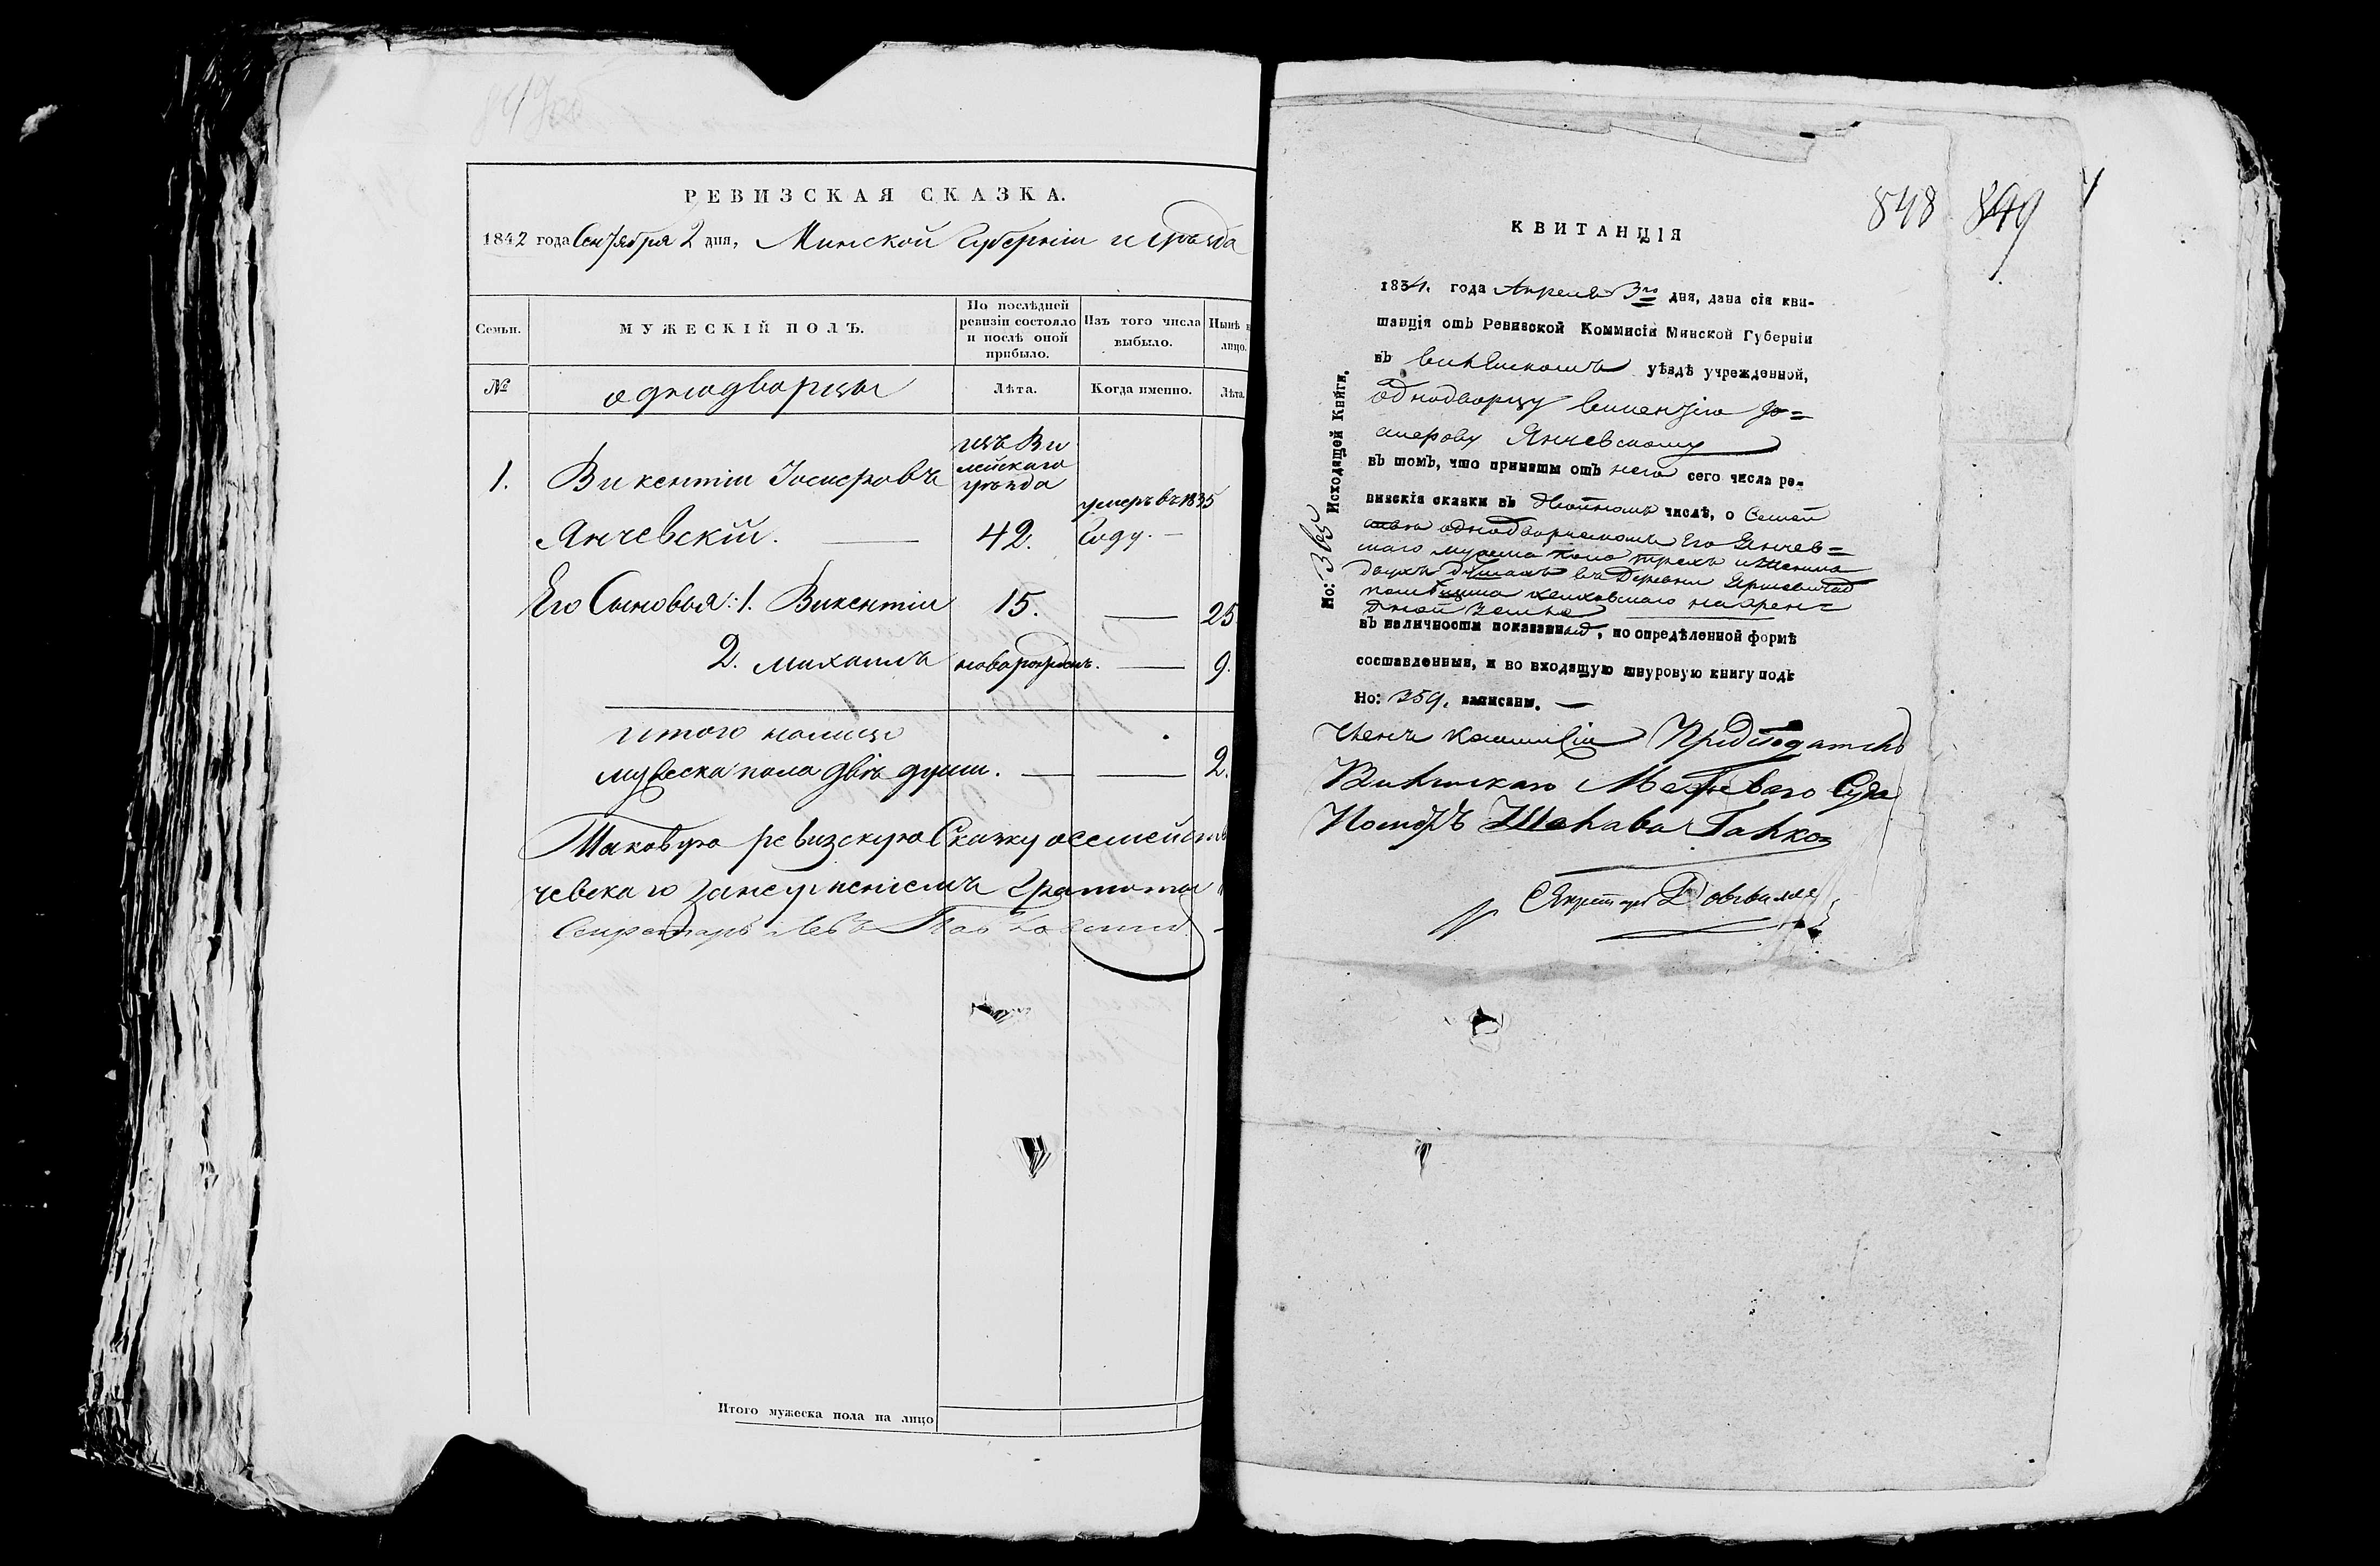 РЕВИЗСКАЯ СКАЗКА.
1842 года Сентября 2 дня, Минской Губерніи и уѣзда
Семьи.
МУЖЕСКІЙ ПОЛЪ.
По послѣдней ревизіи состояло и послѣ оной прибыло.
Изъ того числа выбыло.
Нынѣ н лицо.
№
однодворцы
Лѣта.
Когда именно.
Лѣта.
изъ Ви
лейскаго
уѣзда
1. Викентій Іосифовъ
умеръ въ 1835
Янчевскій. 42. Году.
Его Сыновья: 1. Викентій 15. 25
2. Михаилъ новорожден. 9.
итого налицо
мужеска пола двѣ души. 2.
Таковую ревизскую Сказку о семейств
чевскаго за неумѣніемъ Грамоты
Секретарь Левъ
Итого мужеска пола на лицо
848 849
КВИТАНЦІЯ
1834. года Апреля 3го дня, дана сія кви-
танція отъ Ревизской Коммисіи Минской Губерніи
въ Вилейскомъ уѣздѣ учрежденной,
однодворцу Викентію Іо=
сиферову Янчевскому
въ томъ, что приняты отъ него сего числа ре-
визскія сказки въ числѣ, о Семей
однодворческомъ Его Янчев=
скаго мужеска пола трехъ и женска
двухъ душахъ въ Деревни
помѣщика на арен=
дной земле
въ наличности показанной, по опредѣленной формѣ
составленныя, и во входящую шнуровую книгу подъ
Но: 359. записаны.
Членъ Коммисіи Предсѣдатель
Вилейскаго Межеваго Суда
Секретарь
Но: Исходящей Книги.